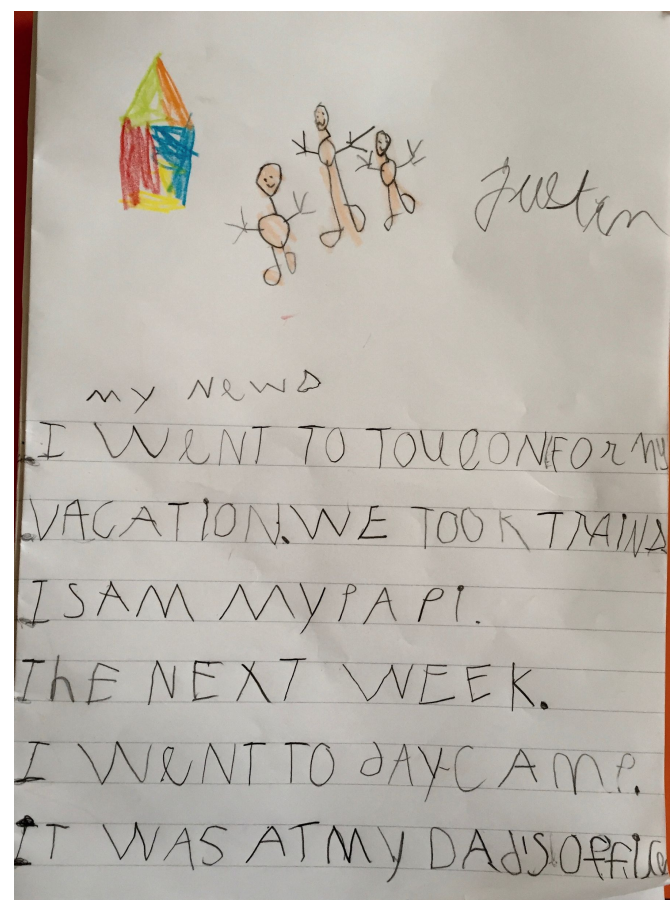 Justin
my News
I WeNT TO TOULON FOr my
VACATION. WE TOOK TRAINS
I SAM MY PAPI.
ThE NEXT WEEK.
I WeNT TO dAY-CAMP.
IT WAS AT MY DAd'S OffiCe